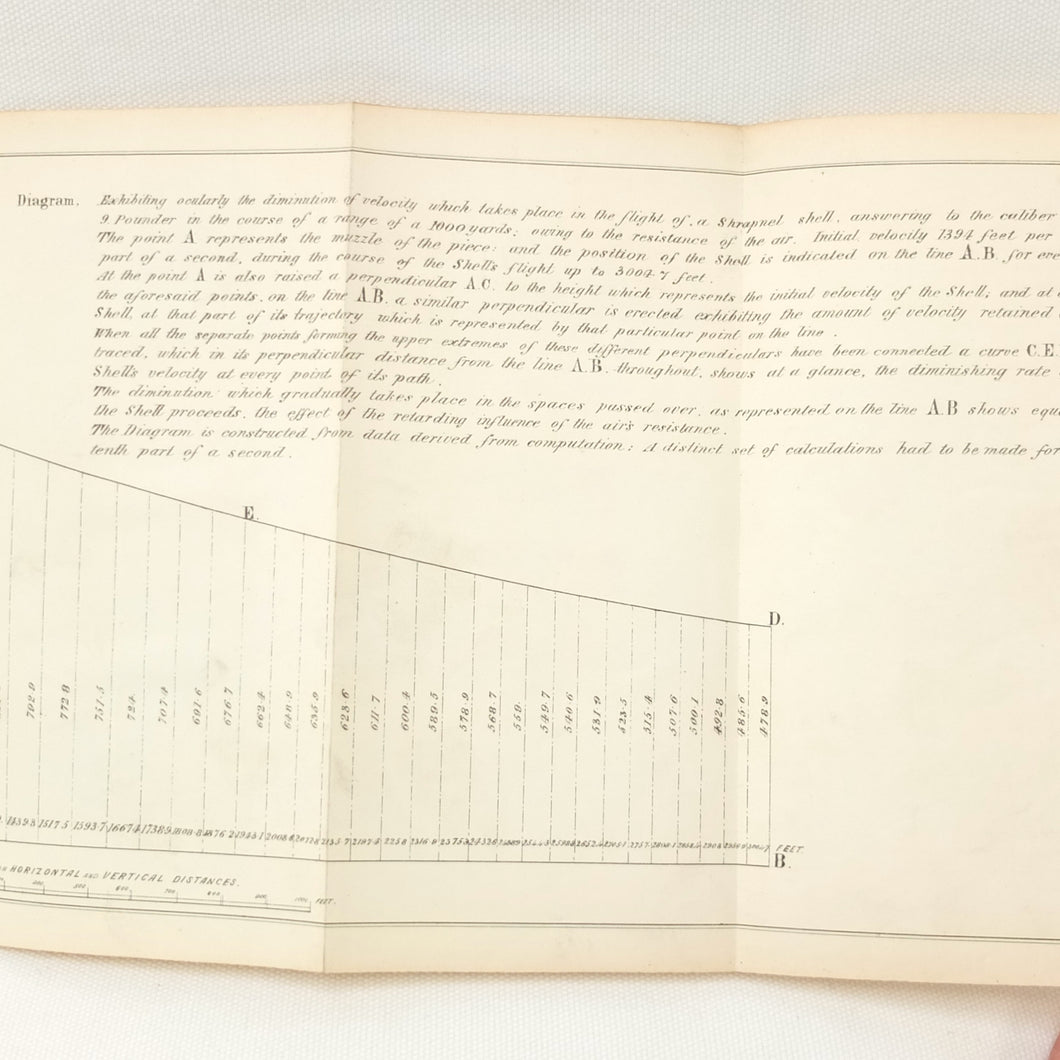 Diagram. Exhibiting ocularly the diminution of velocity which takes place in the flight of, a Shrapnel shell, answering to the caliber
9. Pounder in the course of a range of a 1000 yards; owing to the resistance of the air. Initial velocity 1394 feet per
The point A represents the muzzle of the piece: and the position of the Shell is indicated on the line A.B. for eve
part of a second, during the course of the Shell's flight up to 3004.7 feet.
At the point A is also raised a perpendicular A.C. to the height which represents the initial velocity of the Shell; and at
the aforesaid points, on the line A.B. a similar perpendicular is erected exhibiting the amount of velocity retained
Shell, at that part of its trajectory which is represented by that particular point on the line.
When all the separate points forming the upper extremes of these different perpendiculars have been connected a curve C.E.
traced, which in its perpendicular distance from the line A.B. throughout, shows at a glance, the diminishing rate
Shell's velocity at every point of its path.
The diminution which gradually takes place in the spaces passed over, as represented on the line A.B shows equ
the Shell proceeds, the effect of the retarding influence of the air's resistance.
The Diagram is constructed from data derived from computation: A distinct set of calculations had to be made for
tenth part of a second.
E.
D.
792.9 772.8 751.5 724. 707.4 691.6 676.7 662.4 648.9 635.9 623.6 611.7 600.4 589.5 578.9 568.7 559. 549.7 540.6 531.9 523.5 515.4 507.6 500.1 492.8 485.6 478.9
1439.8 1517.5 1593.7 1667.4 1738.9 1808.8 1943.1 2008.6 2072.8 2135.7 2197.5 2258 2316.9 2375.3 FEET.
B.
HORIZONTAL AND VERTICAL DISTANCES.
400 500 600 700 800 900 1000 FEET.